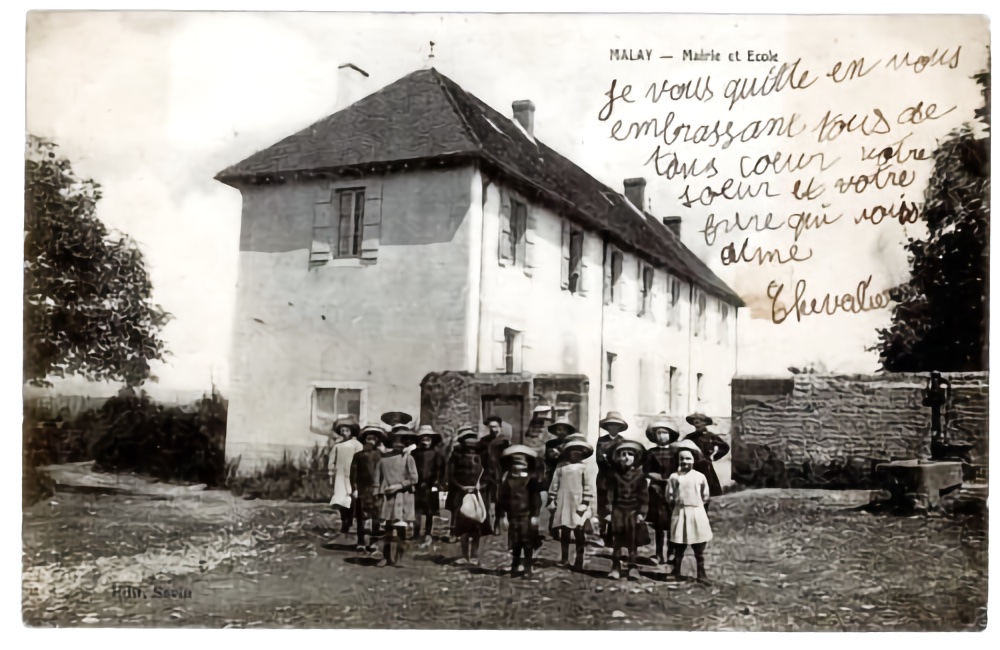 MALAY — Mairie et Ecole
je vous quitte en vous
embrassant tous de
tous coeur votre
soeur et votre
frere qui vous
aime
Chevalier
Edit. Savin